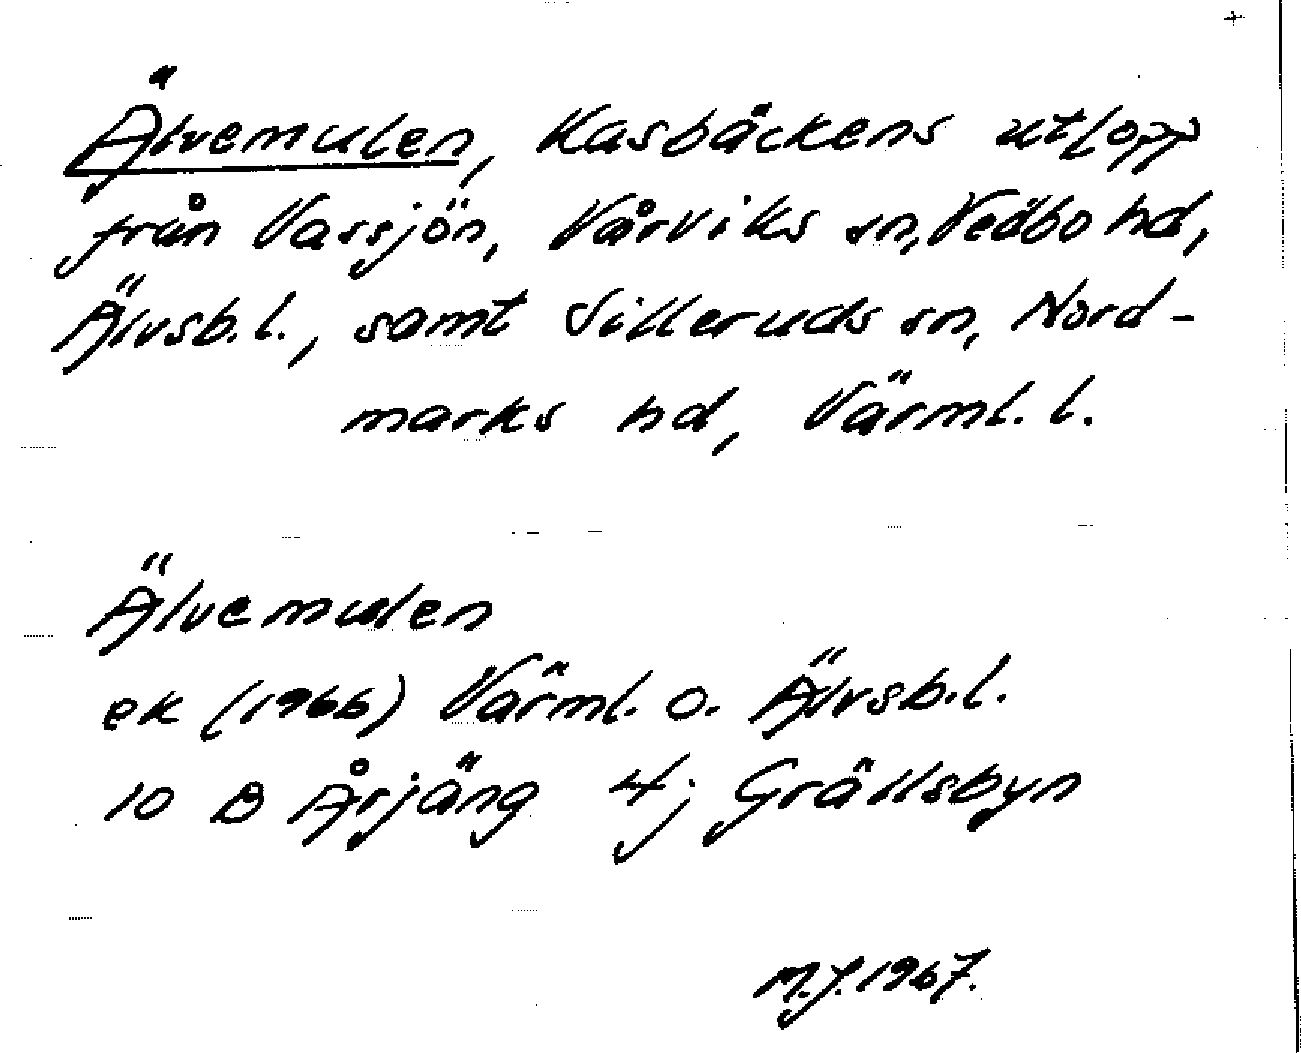 Älvemulen, Kasbäckens utlopp
från Vassjön, Vårviks sn, Vedbo hd,
Älvsb. l., samt Silleruds sn, Nord-
marks hd, Värml. l.
Älvemulen
ek (1966) Värml. o. Älvsb. l.
10 B Årjäng 4j Grällsbyn
M.J. 1967.